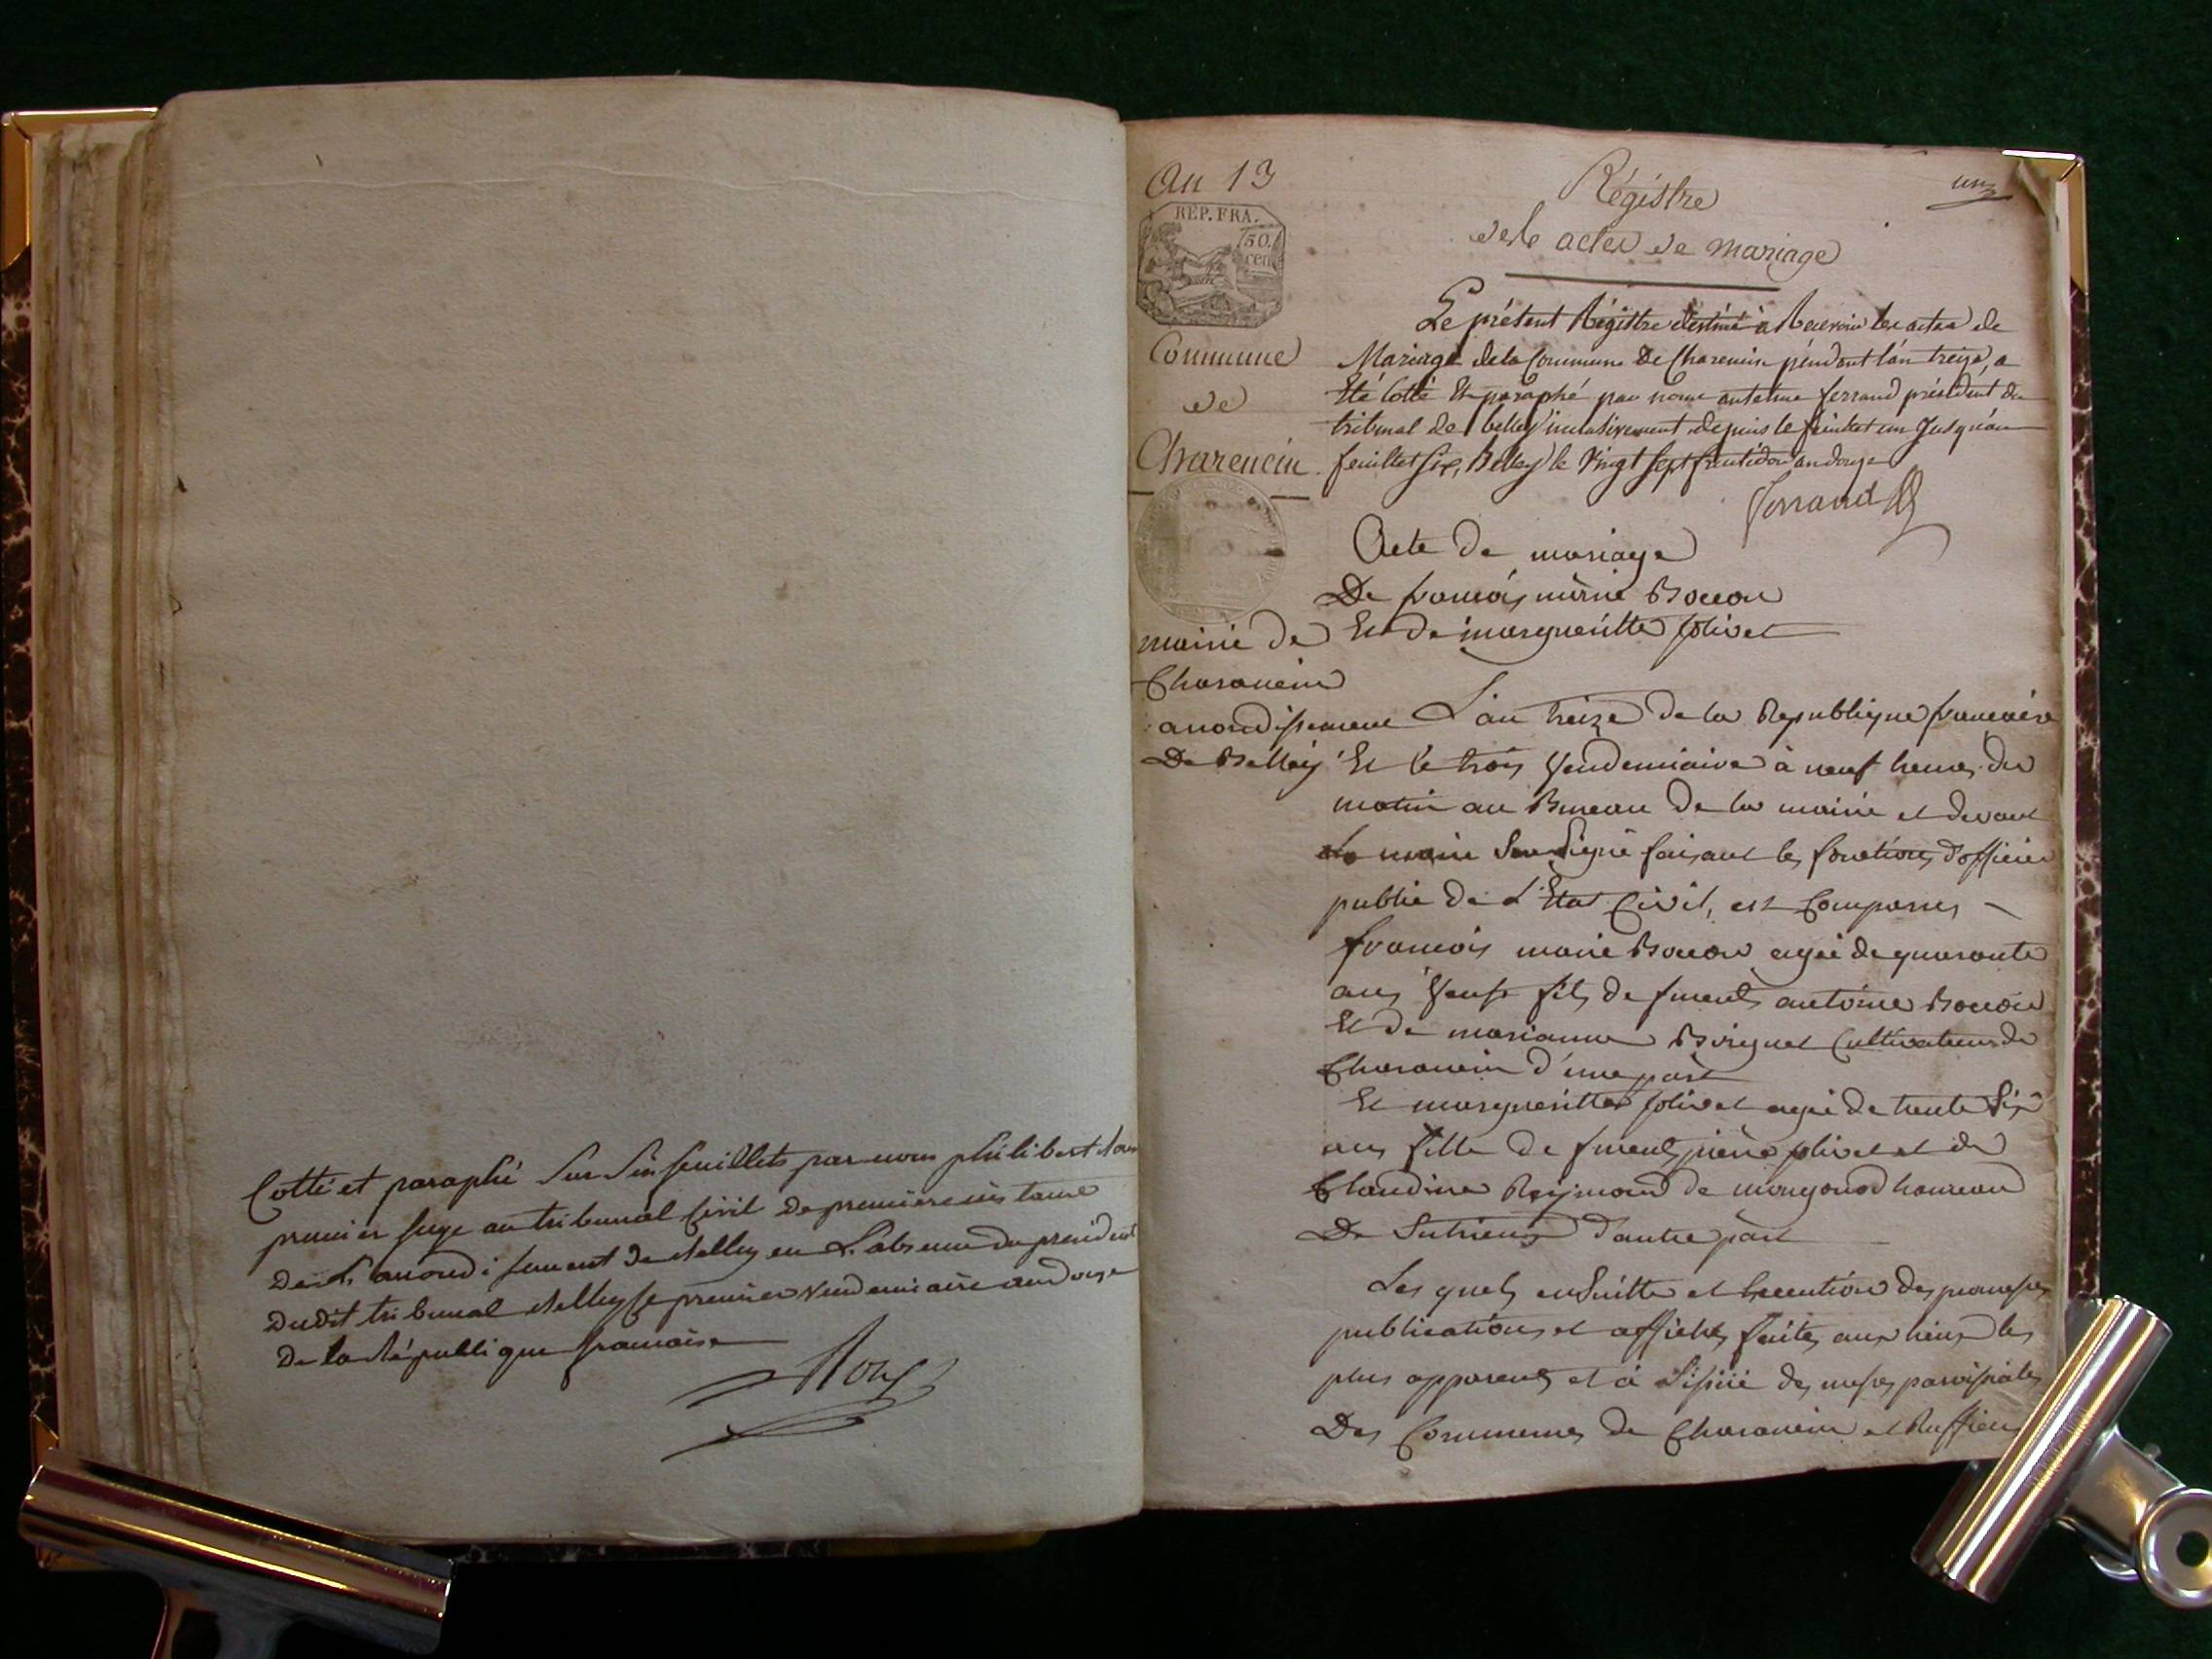 Cotté et paraphé Sur Six feuillets par nous philibert
premier Juge au tribunal Civil de premiere instance
de L'arrondissement de Belley en L'absence du president
dudit tribunal Belley le premier vendemiaire an douze
de la République francaise
Roux
An 13
REP. FRA.
50.
cen
Commune
de
Charencin
un
Régistre
des actes de mariage
Le présent Régistre destiné a Recevoir les actes de
Mariage de la Commune de Charencin péndant l'an treize, a
Eté Cotté Et paraphé par nous antelme ferrand président du
tribunal de belley inclusivement depuis le feuillet un Jusqu'au
feuillet six, Belley le Vingt Sept fructidor an douze
ferrand
mairie de
Charancin
arrondissement
De Belley
Acte de mariage
De francois marie Bocon
Et de margueritte Jolivet
L'an treize de la Republique francaise
Et le trois Vendemiaire à neuf heures du
matin au Bureau de la mairie et devant
le maire Sousigné faisant les fonctions d'officier
public de L'Etat Civil, est Comparus
francois marie Bocon agée de quarante
ans Veuf fils de fument antoine Bocon
Et de marianne Boriguet Cultivateur de
Charancin d'une part
Et margueritte Jolivet agée de trente Six
ans fille de fument pierre Jolivet et de
Claudine Reymond de mongonod hameau
De Sutrieux d'autre part
Les quels enSuitte et Execution des promesses
publications et affiches faites aux lieux les
plus apparents et à L'issüe des messes paroissiales
Des Communes de Charancin et Ruffieu